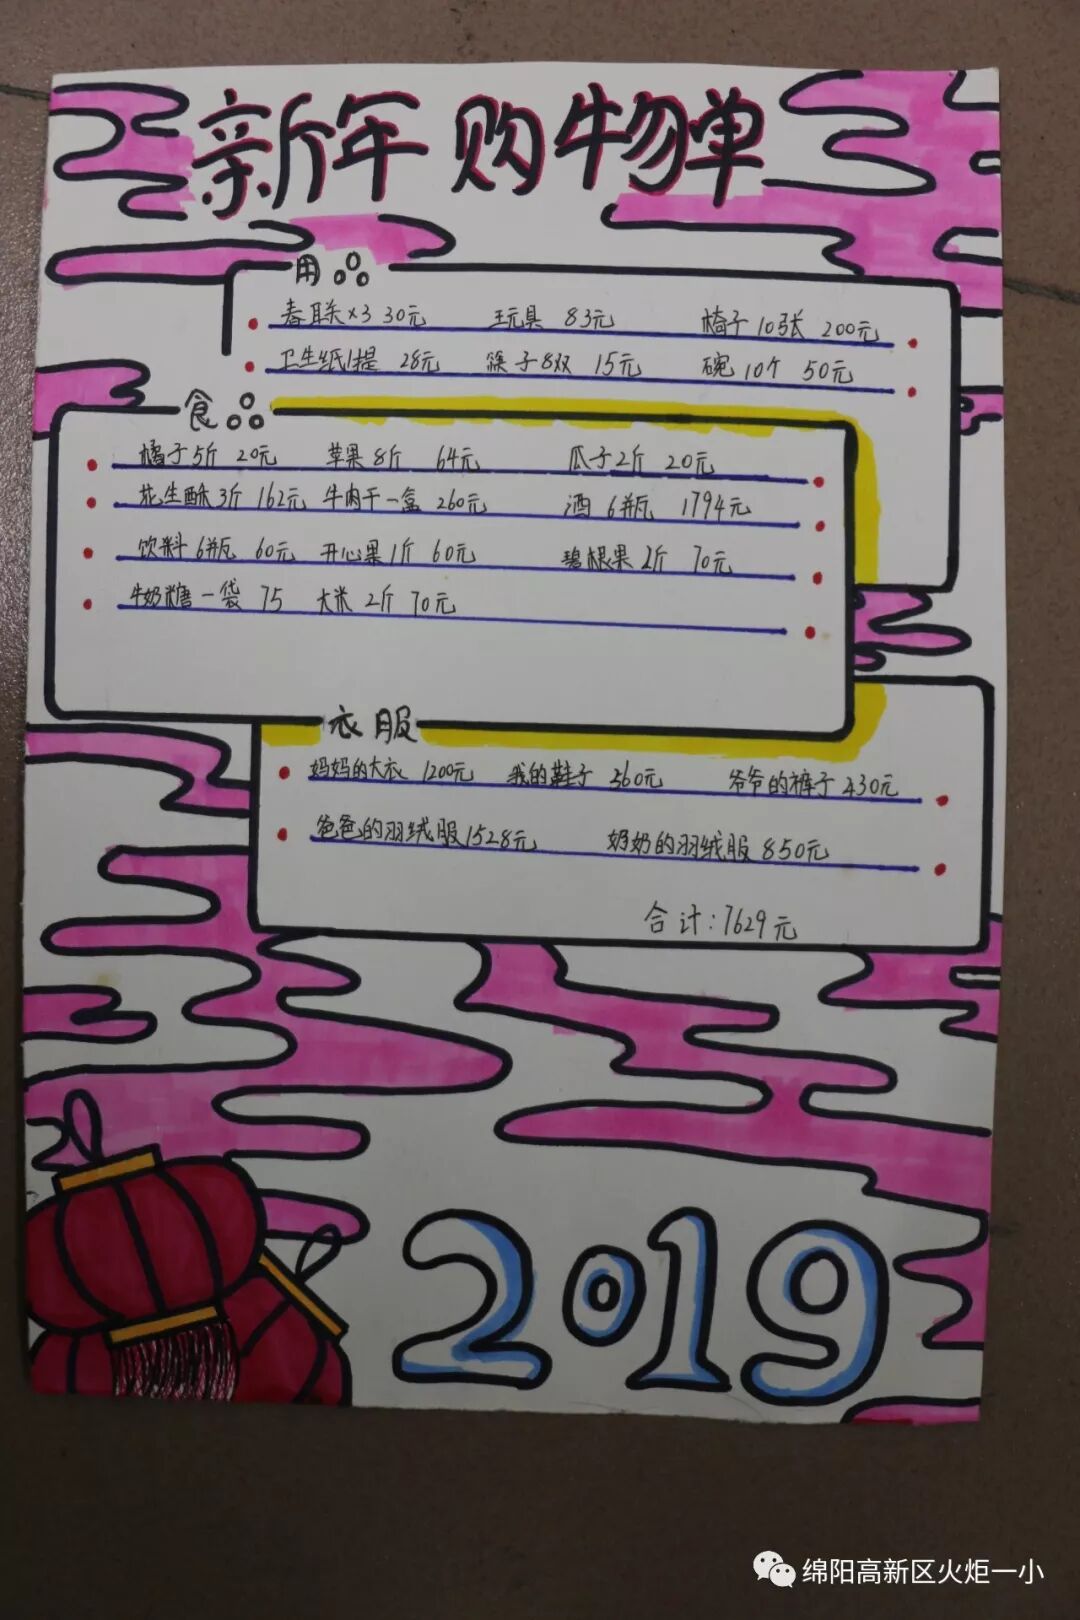 新年购物单
用
春联×3 30元 玩具 83元 椅子10张 200元
卫生纸1提 28元 筷子8双 15元 碗10个 50元
食
橘子5斤 20元 苹果8斤 64元 瓜子2斤 20元
花生酥3斤 162元 牛肉干一盒 260元 酒6瓶 1794元
饮料6瓶 60元 开心果1斤 60元 碧根果2斤 70元
牛奶糖一袋 75 大米2斤 70元
衣服
妈妈的大衣 1200元 我的鞋子 560元 爷爷的裤子 430元
爸爸的羽绒服1528元 奶奶的羽绒服850元
合计:7629元
2019
绵阳高新区火炬一小